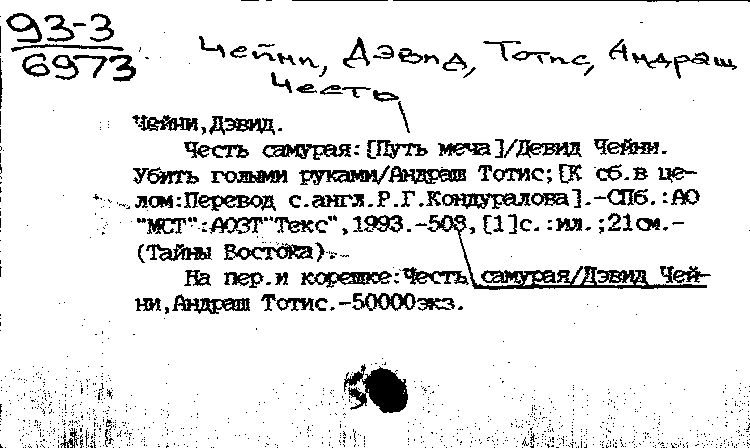 93-3
6973
Чейни, Дэвид, Тотис, Андраш
Честь
Чейни,Дэвид.
Честь самурая:[Путь меча]/Девид Чейни.
Убить голыми руками/Андраш Тотис;[К сб.в це-
лом:Перевод с.англ.Р.Г.Кондуралова].-СПб.:АО
"МСТ":АОЗТ"Текс",1993.-508,[1]с.:ил.;21см.-
(Тайны Востока).-
На пер.и корешке:Честь самурая/Дэвид Чей-
ни,Андраш Тотис.-50000экз.